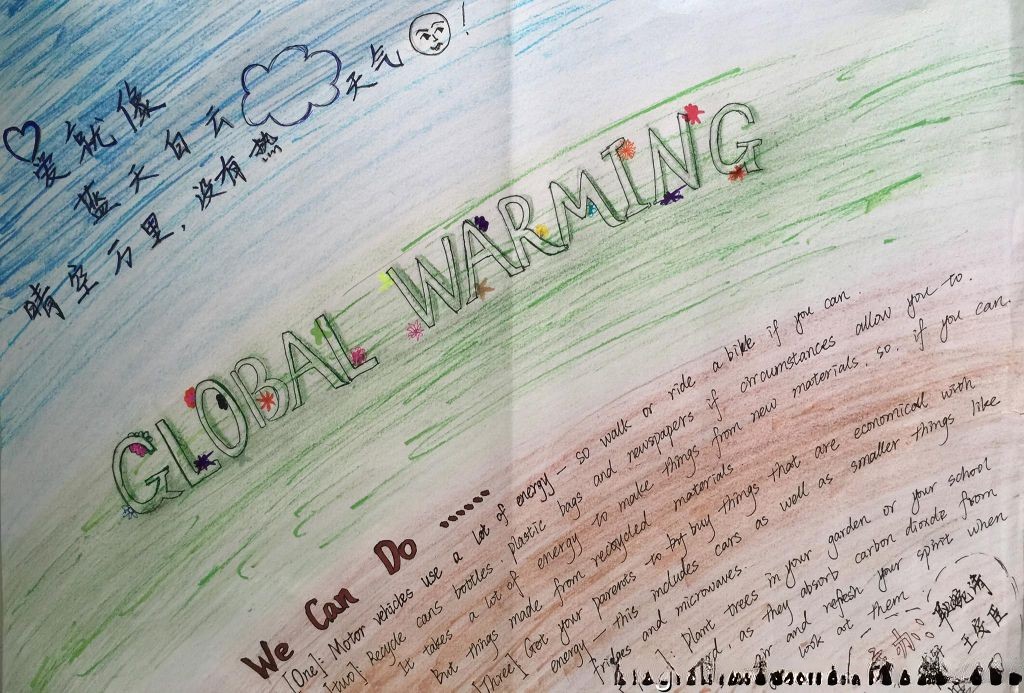 爱就像
蓝天白云
晴空万里，没有热天气！
GLOBAL WARMING
We Can Do ......
[One]: Motor vehicles use a lot of energy — so walk or ride a bike if you can.
[two]: Recycle cans bottles. plastic bags and newspapers if circumstances allow you to.
It takes a lot of energy to make things from new materials. so. if you can.
But things made from recycled materials
[Three] Get your parents to buy things that are economical with
energy — this includes cars as well as smaller things like
fridges and microwaves.
Plant trees in your garden or your school
as they absorb carbon dioxdz from
air and refresh your spirit when
look at them